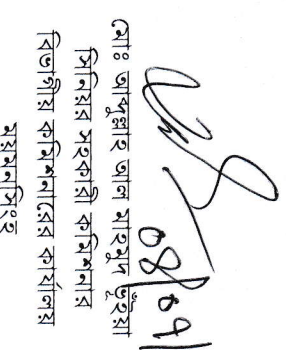 মোঃ আব্দুল্লাহ আল মাহমুদ ভূঁইয়া
সিনিয়র সহকারী কমিশনার
বিভাগীয় কমিশনারের কার্যালয়
ময়মনসিংহ